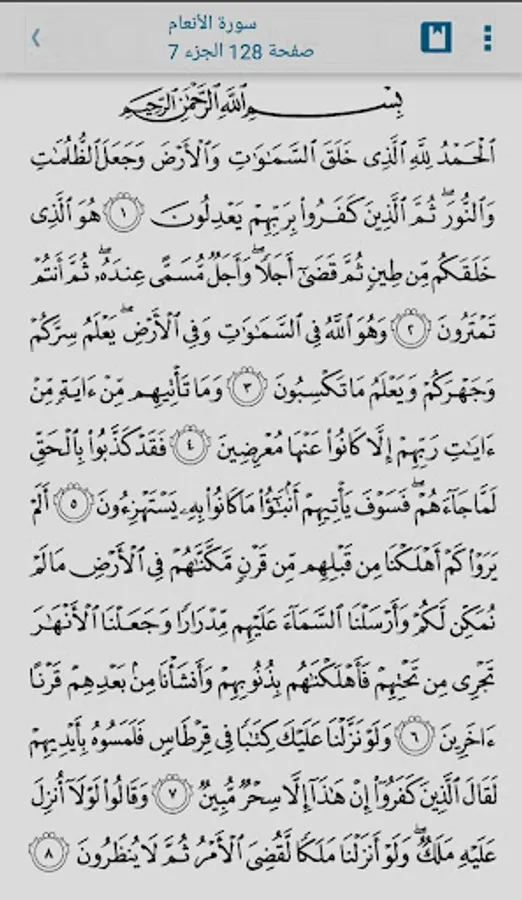 سورة الأنعام
صفحة 128 الجزء 7
بِسْمِ ٱللَّهِ ٱلرَّحْمَٰنِ ٱلرَّحِيمِ
ٱلْحَمْدُ لِلَّهِ ٱلَّذِى خَلَقَ ٱلسَّمَٰوَٰتِ وَٱلْأَرْضَ وَجَعَلَ ٱلظُّلُمَٰتِ
وَٱلنُّورَ ۖ ثُمَّ ٱلَّذِينَ كَفَرُوا۟ بِرَبِّهِمْ يَعْدِلُونَ ١ هُوَ ٱلَّذِى
خَلَقَكُم مِّن طِينٍ ثُمَّ قَضَىٰٓ أَجَلًا ۖ وَأَجَلٌ مُّسَمًّى عِندَهُۥ ۖ ثُمَّ أَنتُمْ
تَمْتَرُونَ ٢ وَهُوَ ٱللَّهُ فِى ٱلسَّمَٰوَٰتِ وَفِى ٱلْأَرْضِ ۖ يَعْلَمُ سِرَّكُمْ
وَجَهْرَكُمْ وَيَعْلَمُ مَا تَكْسِبُونَ ٣ وَمَا تَأْتِيهِم مِّنْ ءَايَةٍ مِّنْ
ءَايَٰتِ رَبِّهِمْ إِلَّا كَانُوا۟ عَنْهَا مُعْرِضِينَ ٤ فَقَدْ كَذَّبُوا۟ بِٱلْحَقِّ
لَمَّا جَآءَهُمْ ۖ فَسَوْفَ يَأْتِيهِمْ أَنۢبَٰٓؤُا۟ مَا كَانُوا۟ بِهِۦ يَسْتَهْزِءُونَ ٥ أَلَمْ
يَرَوْا۟ كَمْ أَهْلَكْنَا مِن قَبْلِهِم مِّن قَرْنٍ مَّكَّنَّٰهُمْ فِى ٱلْأَرْضِ مَا لَمْ
نُمَكِّن لَّكُمْ وَأَرْسَلْنَا ٱلسَّمَآءَ عَلَيْهِم مِّدْرَارًا وَجَعَلْنَا ٱلْأَنْهَٰرَ
تَجْرِى مِن تَحْتِهِمْ فَأَهْلَكْنَٰهُم بِذُنُوبِهِمْ وَأَنشَأْنَا مِنۢ بَعْدِهِمْ قَرْنًا
ءَاخَرِينَ ٦ وَلَوْ نَزَّلْنَا عَلَيْكَ كِتَٰبًا فِى قِرْطَاسٍ فَلَمَسُوهُ بِأَيْدِيهِمْ
لَقَالَ ٱلَّذِينَ كَفَرُوٓا۟ إِنْ هَٰذَآ إِلَّا سِحْرٌ مُّبِينٌ ٧ وَقَالُوا۟ لَوْلَآ أُنزِلَ
عَلَيْهِ مَلَكٌ ۖ وَلَوْ أَنزَلْنَا مَلَكًا لَّقُضِىَ ٱلْأَمْرُ ثُمَّ لَا يُنظَرُونَ ٨